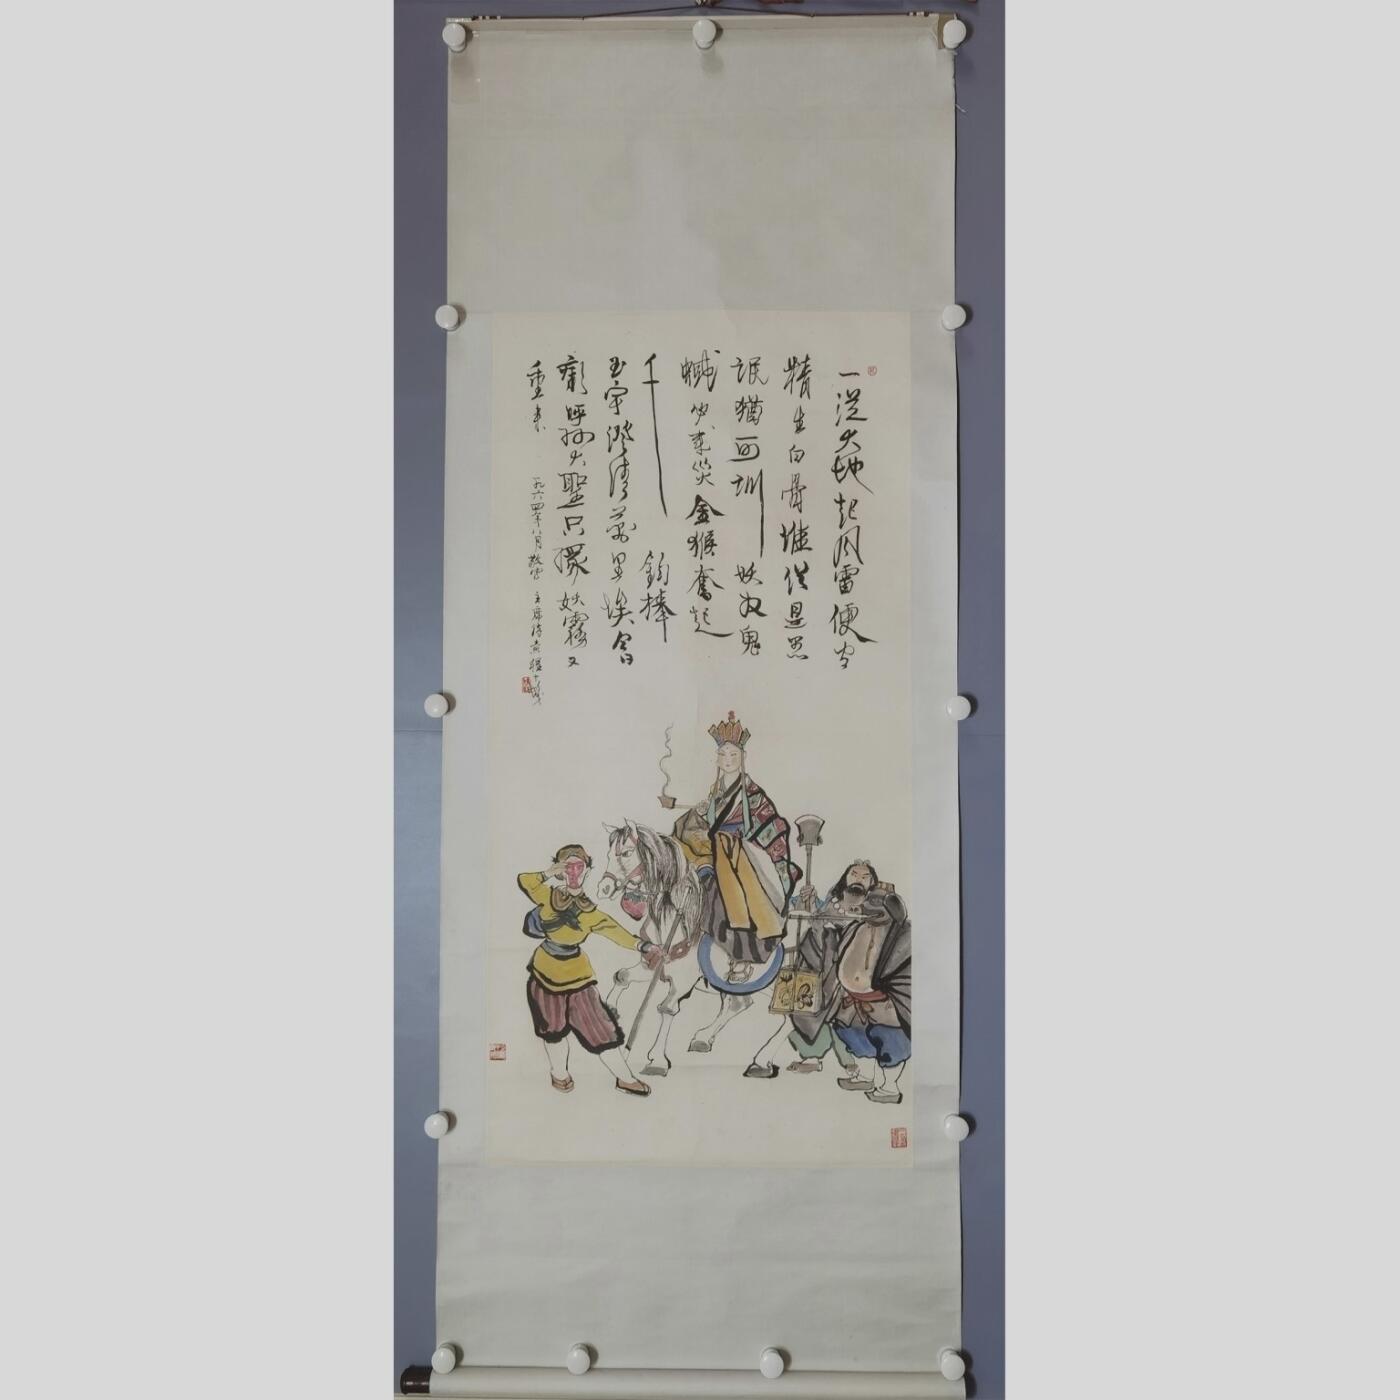 一從大地起风雷便有
精生白骨堆僧是愚
氓猶可训妖为鬼
蜮必成災金猴奮起
千鈞棒
玉宇澄清萬里埃今日
歡呼孙大聖只緣妖霧又
重來
一九六四年八月敬寫主席詩意程十髮